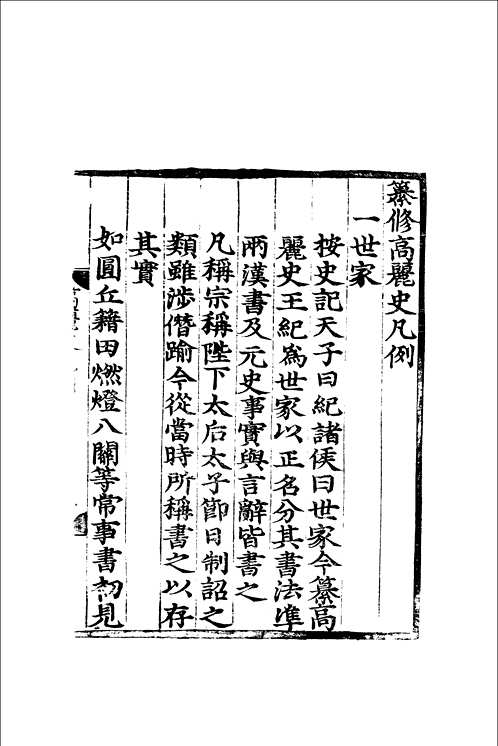 纂修高麗史凡例
一世家
按史記天子曰紀諸侯曰世家今纂高
麗史王紀爲世家以正名分其書法準
兩漢書及元史事實與言辭皆書之
凡稱宗稱陛下太后太子節日制詔之
類雖涉僭踰今從當時所稱書之以存
其實
如圓丘籍田燃燈八關等常事書初見